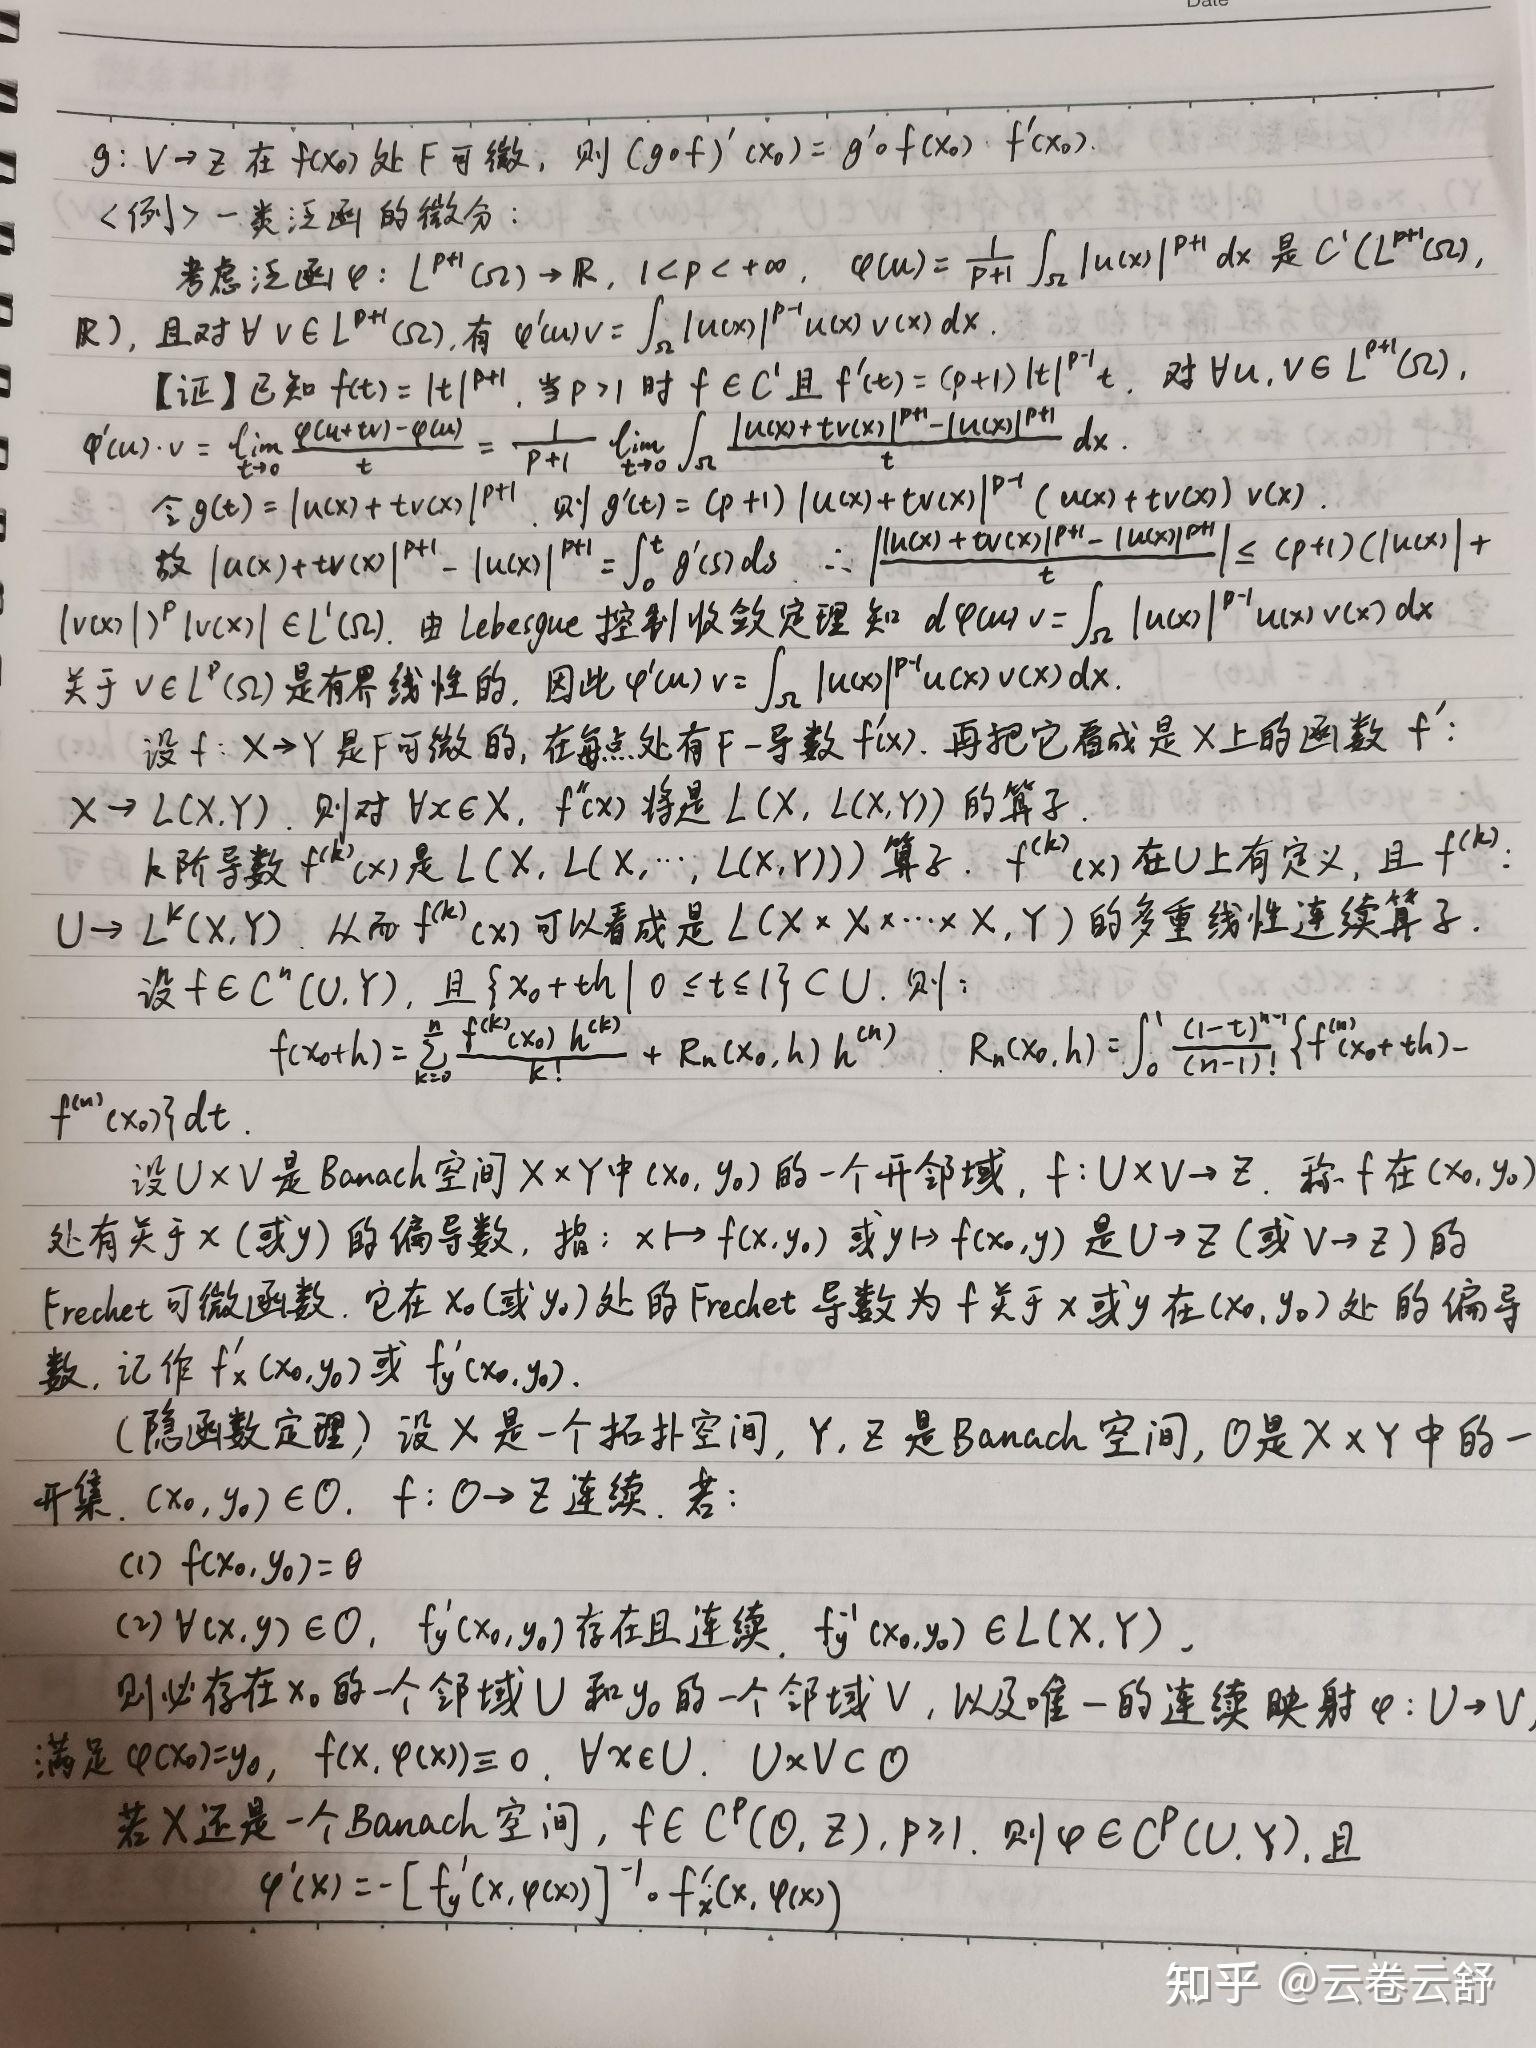 Date
g: V→Z 在 f(x₀) 处 F 可微, 则 (g∘f)′(x₀) = g′∘f(x₀)·f′(x₀).
<例> 一类泛函的微分:
考虑泛函 φ: L^{p+1}(Ω)→ℝ, 1<p<+∞, φ(u) = \frac{1}{p+1} ∫_Ω |u(x)|^{p+1} dx 是 C′(L^{p+1}(Ω),
ℝ), 且对 ∀v∈L^{p+1}(Ω), 有 φ′(u)v = ∫_Ω |u(x)|^{p-1} u(x) v(x) dx.
【证】已知 f(t) = |t|^{p+1}, 当 p>1 时 f∈C′ 且 f′(t) = (p+1)|t|^{p-1}t. 对 ∀u,v∈L^{p+1}(Ω),
φ′(u)·v = lim_{t→0} \frac{φ(u+tv)-φ(u)}{t} = \frac{1}{p+1} lim_{t→0} ∫_Ω \frac{|u(x)+tv(x)|^{p+1}-|u(x)|^{p+1}}{t} dx.
令 g(t) = |u(x)+tv(x)|^{p+1}, 则 g′(t) = (p+1)|u(x)+tv(x)|^{p-1}(u(x)+tv(x))v(x).
故 |u(x)+tv(x)|^{p+1} - |u(x)|^{p+1} = ∫_0^t g′(s)ds. ∴ |\frac{|u(x)+tv(x)|^{p+1}-|u(x)|^{p+1}}{t}| ≤ (p+1)(|u(x)|+
|v(x)|)^p |v(x)| ∈L′(Ω). 由 Lebesgue 控制收敛定理知 dφ(u)v = ∫_Ω |u(x)|^{p-1} u(x) v(x) dx
关于 v∈L^p(Ω) 是有界线性的, 因此 φ′(u)v = ∫_Ω |u(x)|^{p-1} u(x) v(x) dx.
设 f: X→Y 是 F 可微的, 在每点处有 F-导数 f′(x). 再把它看成是 X 上的函数 f′:
X→L(X,Y). 则对 ∀x∈X, f″(x) 将是 L(X, L(X,Y)) 的算子.
k 阶导数 f^{(k)}(x) 是 L(X, L(X,⋯, L(X,Y))) 算子. f^{(k)}(x) 在 U 上有定义, 且 f^{(k)}:
U→L^k(X,Y). 从而 f^{(k)}(x) 可以看成是 L(X×X×⋯×X, Y) 的多重线性连续算子.
设 f∈Cⁿ(U,Y), 且 {x₀+th | 0≤t≤1}⊂U. 则:
f(x₀+h) = \sum_{k=0}^{n} \frac{f^{(k)}(x₀)h^{(k)}}{k!} + Rₙ(x₀,h)h^{(n)}. Rₙ(x₀,h) = ∫_0^1 \frac{(1-t)^{n-1}}{(n-1)!} {f^{(n)}(x₀+th)-
f^{(n)}(x₀)}dt.
设 U×V 是 Banach 空间 X×Y 中 (x₀,y₀) 的一个开邻域, f: U×V→Z. 称 f 在 (x₀,y₀)
处有关于 x (或 y) 的偏导数, 指: x↦f(x,y₀) 或 y↦f(x₀,y) 是 U→Z (或 V→Z) 的
Frechet 可微函数. 它在 x₀ (或 y₀) 处的 Frechet 导数为 f 关于 x 或 y 在 (x₀,y₀) 处的偏导
数, 记作 f′ₓ(x₀,y₀) 或 f_y′(x₀,y₀).
(隐函数定理) 设 X 是一个拓扑空间, Y, Z 是 Banach 空间, O 是 X×Y 中的一
开集. (x₀,y₀)∈O. f: O→Z 连续. 若:
(1) f(x₀,y₀) = θ
(2) ∀(x,y)∈O, f_y′(x₀,y₀) 存在且连续. f_y^{-1}(x₀,y₀)∈L(X,Y),
则必存在 x₀ 的一个邻域 U 和 y₀ 的一个邻域 V, 以及唯一的连续映射 φ: U→V,
满足 φ(x₀)=y₀, f(x,φ(x))≡0. ∀x∈U. U×V⊂O
若 X 还是一个 Banach 空间, f∈C^p(O,Z), p≥1. 则 φ∈C^p(U,Y), 且
φ′(x) = -[f_y′(x,φ(x))]^{-1}∘f′ₓ(x,φ(x))
知乎 @云卷云舒